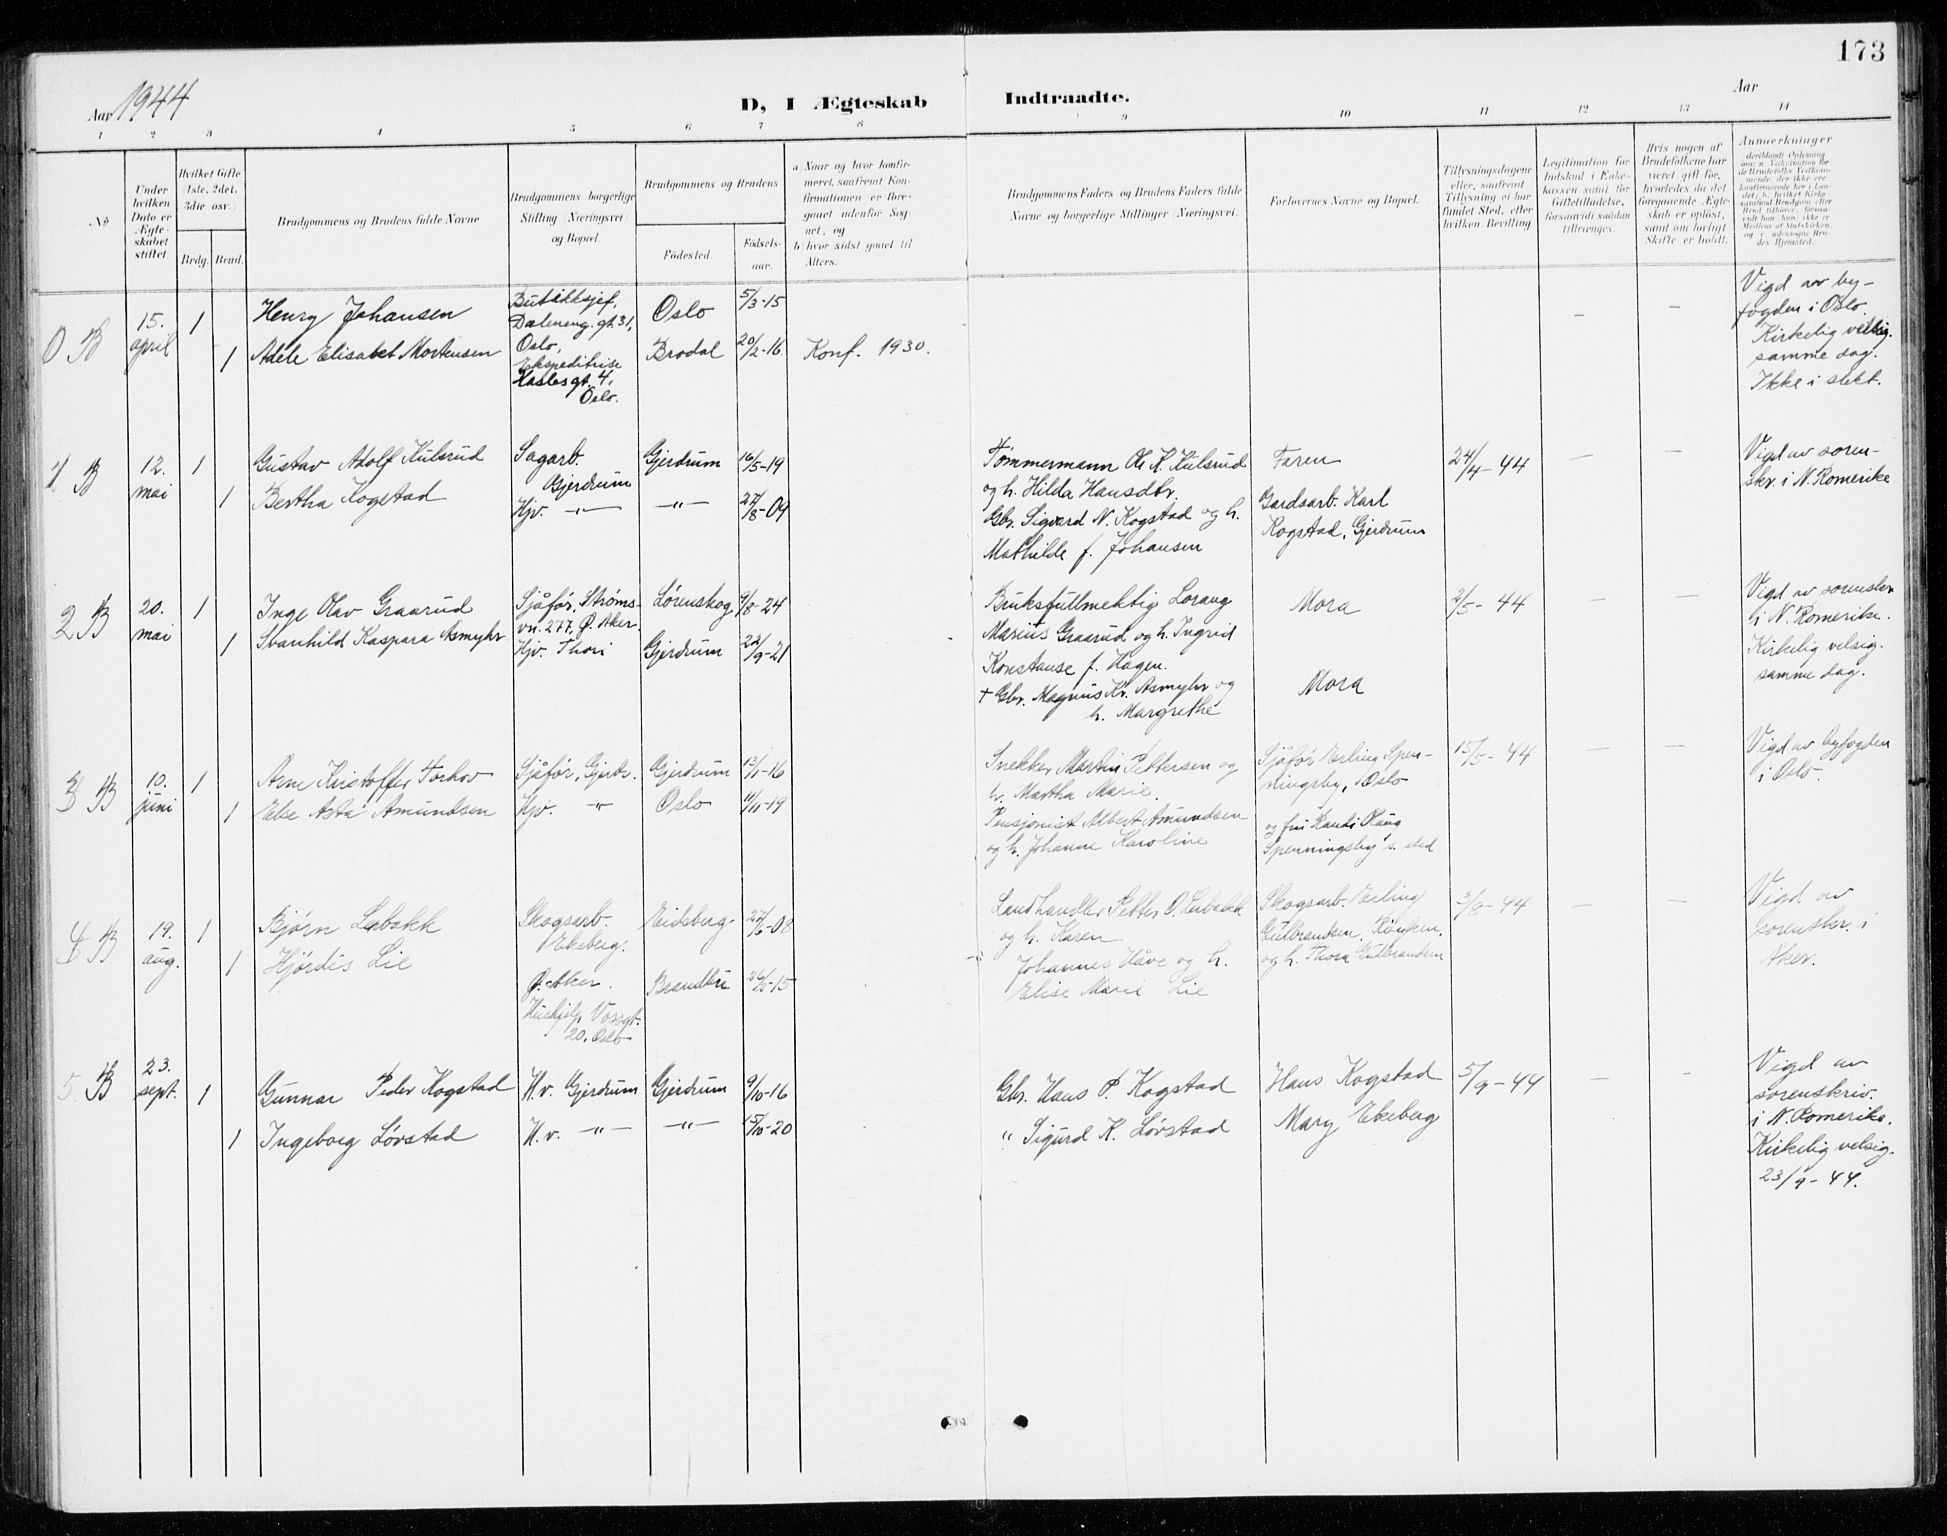 173
Aar 1944
D, I Ægteskab Indtraadte.
Aar
1 2 3 4 5 6 7 8 9 10 11 12 13 14
No
Under hvilken Dato er Ægteskabet stiftet
Hvilket Gifte (1ste, 2det, 3die osv.)
Brdg. Brud.
Brudgommens og Brudens fulde Navne
Brudgommens borgerlige Stilling (Næringsvei) og Bopæl.
Brudgommens og Brudens
Fødested. Fødselsaar.
a) Naar og hvor konfirmeret, saafremt Konfirmationen er foregaaet udenfor Sognet, og
b) hvor sidst gaaet til Alters.
Brudgommens Faders og Brudens Faders fulde Navne og borgerlige Stillinger (Næringsvei).
Forlovernes Navne og Bopæl.
Tillysningsdagene eller, saafremt Tillysning ei har fundet Sted, efter hvilken Bevilling.
Legitimation for Indskud i Enkekassen samt for Giftetilladelse, forsaavidt saadan tiltrænges.
Hvis nogen af Brudefolkene har været gift før, hvorledes da det foregaaende Ægteskab er opløst, samt om lovligt Skifte er holdt.
Anmerkninger
0 B 15. april 1
Henry Johansen
Butikksjef,
Dæleneng. gt. 31,
Oslo,
Oslo 5/3-15
1 Adele Elisabet Mortensen
Ekspeditrise
Haslesgt. 4,
Oslo.
Brødal 20/2-16
Konf. 1930.
— —
Vigd av by-
fogden i Oslo.
Kirkelig velsig.
samme dag.
Ikke i slekt.
1 B 12. mai 1
Gustav Adolf Kulsrud
Sagarb.
Gjerdrum
Gjerdrum 16/5-19
1 Bertha Kogstad
Hjv. —"— —"— 27/8-09
Tømmermann Ole K. Kulsrud
og h. Hilda Hansdtr.
Gbr. Sigvard N. Kogstad og h.
Mathilde f. Johansen
Faren
Gardsarb. Karl
Kogstad, Gjerdrum
24/4-44
— —
Vigd av soren-
skr. i N. Romerike
2 B 20. mai 1
Inge Olav Graarud
Sjåfør, Strøms-
vn. 277, Ø. Aker.
Lørenskog 9/8-24
1 Svanhild Kaspara Asmyhr
Hjv. Thori
Gjerdrum 22/9-21
Bruksfullmektig Lorang
Marius Graarud og h. Ingrid
Konstanse f. Hagen.
+ Gbr. Magnus Kr. Asmyhr og
h. Margrethe
Mora
Mora
2/5-44
— —
Vigd av sorenskr.
i N. Romerike.
Kirkelig velsig.
samme dag.
3 B 10. juni 1
Arne Kristoffer Torhov
Sjåfør, Gjerdr.
Gjerdrum 13/1-16
1 Else Asta Amundsen
Hjv. —"—
Oslo 11/11-19
Snekker Martin Pettersen og
h. Martha Marie.
Pensjonist Albert Amundsen
og h. Johanne Karoline
Sjåfør Erling Spen-
ningsby, Oslo
og fru Randi Olaug
Spenningsby s. sted
15/5-44
— —
Vigd av byfogden
i Oslo.
4 B 19. aug. 1
Bjørn Lerbakk
Skogsarb.
Ekeberg.
Ø. Aker.
Eidsberg 27/6-08
1 Hjørdis Lie
Hushjelp Vossgt.
20. Oslo
Brandbu 26/5-15
Landhandler Petter O. Lerbakk
og h. Karen
Johannes Håve og h.
Elise Marie Lie
Skogsarb. Erling
Gulbrandsen, Røyken,
og h. Thora Gulbrandsen
3/8-44
— —
Vigd av
sorenskr. i
Aker.
5. B 23. sept. 1
Gunnar Peder Kogstad
H.v. Gjerdrum
Gjerdrum 9/10-16
1 Ingeborg Løvstad
H.v. —"— —"— 15/10-20
Gbr. Hans P. Kogstad
" Sigurd K. Løvstad
Hans Kogstad
Mary Ekeberg
5/9-44
— —
Vigd av
sorenskriv.
i N. Romerike.
Kirkelig velsig.
23/9-44.